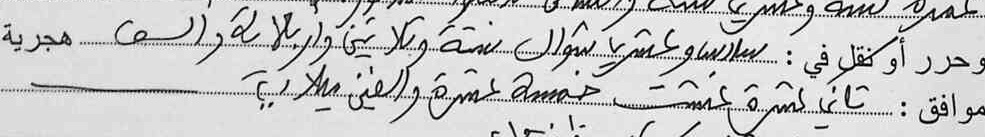 وحرر أو نقل في : سادس وعشرين شوال سنة وثلاثين وأربعمائة والف هجرية
موافق : ثاني عشرة غشت خمسة عشرة والفين ميلادية